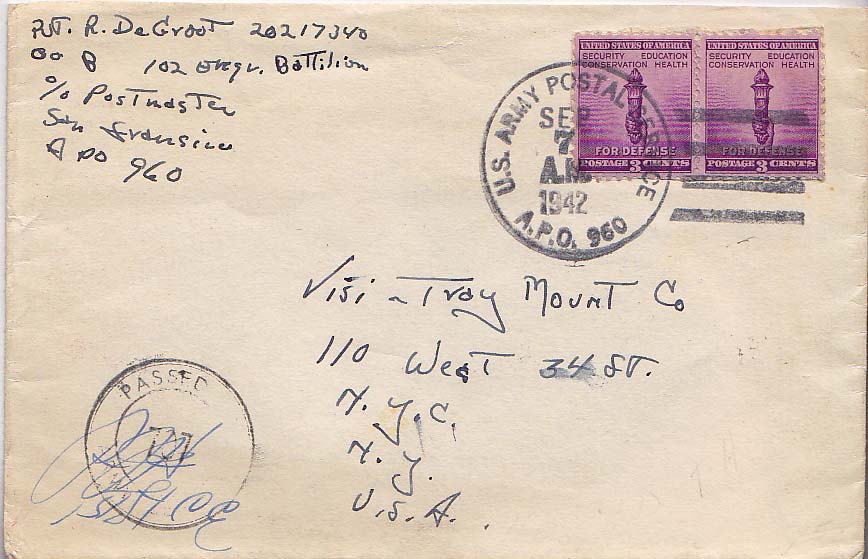 Pvt. R. DeGroot 20217340
Co B 102 Engr. Battilion
c/o Postmaster
San Fransisco
APO 960
UNITED STATES OF AMERICA
SECURITY EDUCATION
CONSERVATION HEALTH
FOR DEFENSE
POSTAGE 3 CENTS
UNITED STATES OF AMERICA
SECURITY EDUCATION
CONSERVATION HEALTH
FOR DEFENSE
POSTAGE 3 CENTS
U.S. ARMY POSTAL SERVICE
SEP
7
A.M.
1942
A.P.O. 960
Visi-Tray Mount Co
110 West 34 St.
N.Y.C.
N.Y.
U.S.A.
PASSED